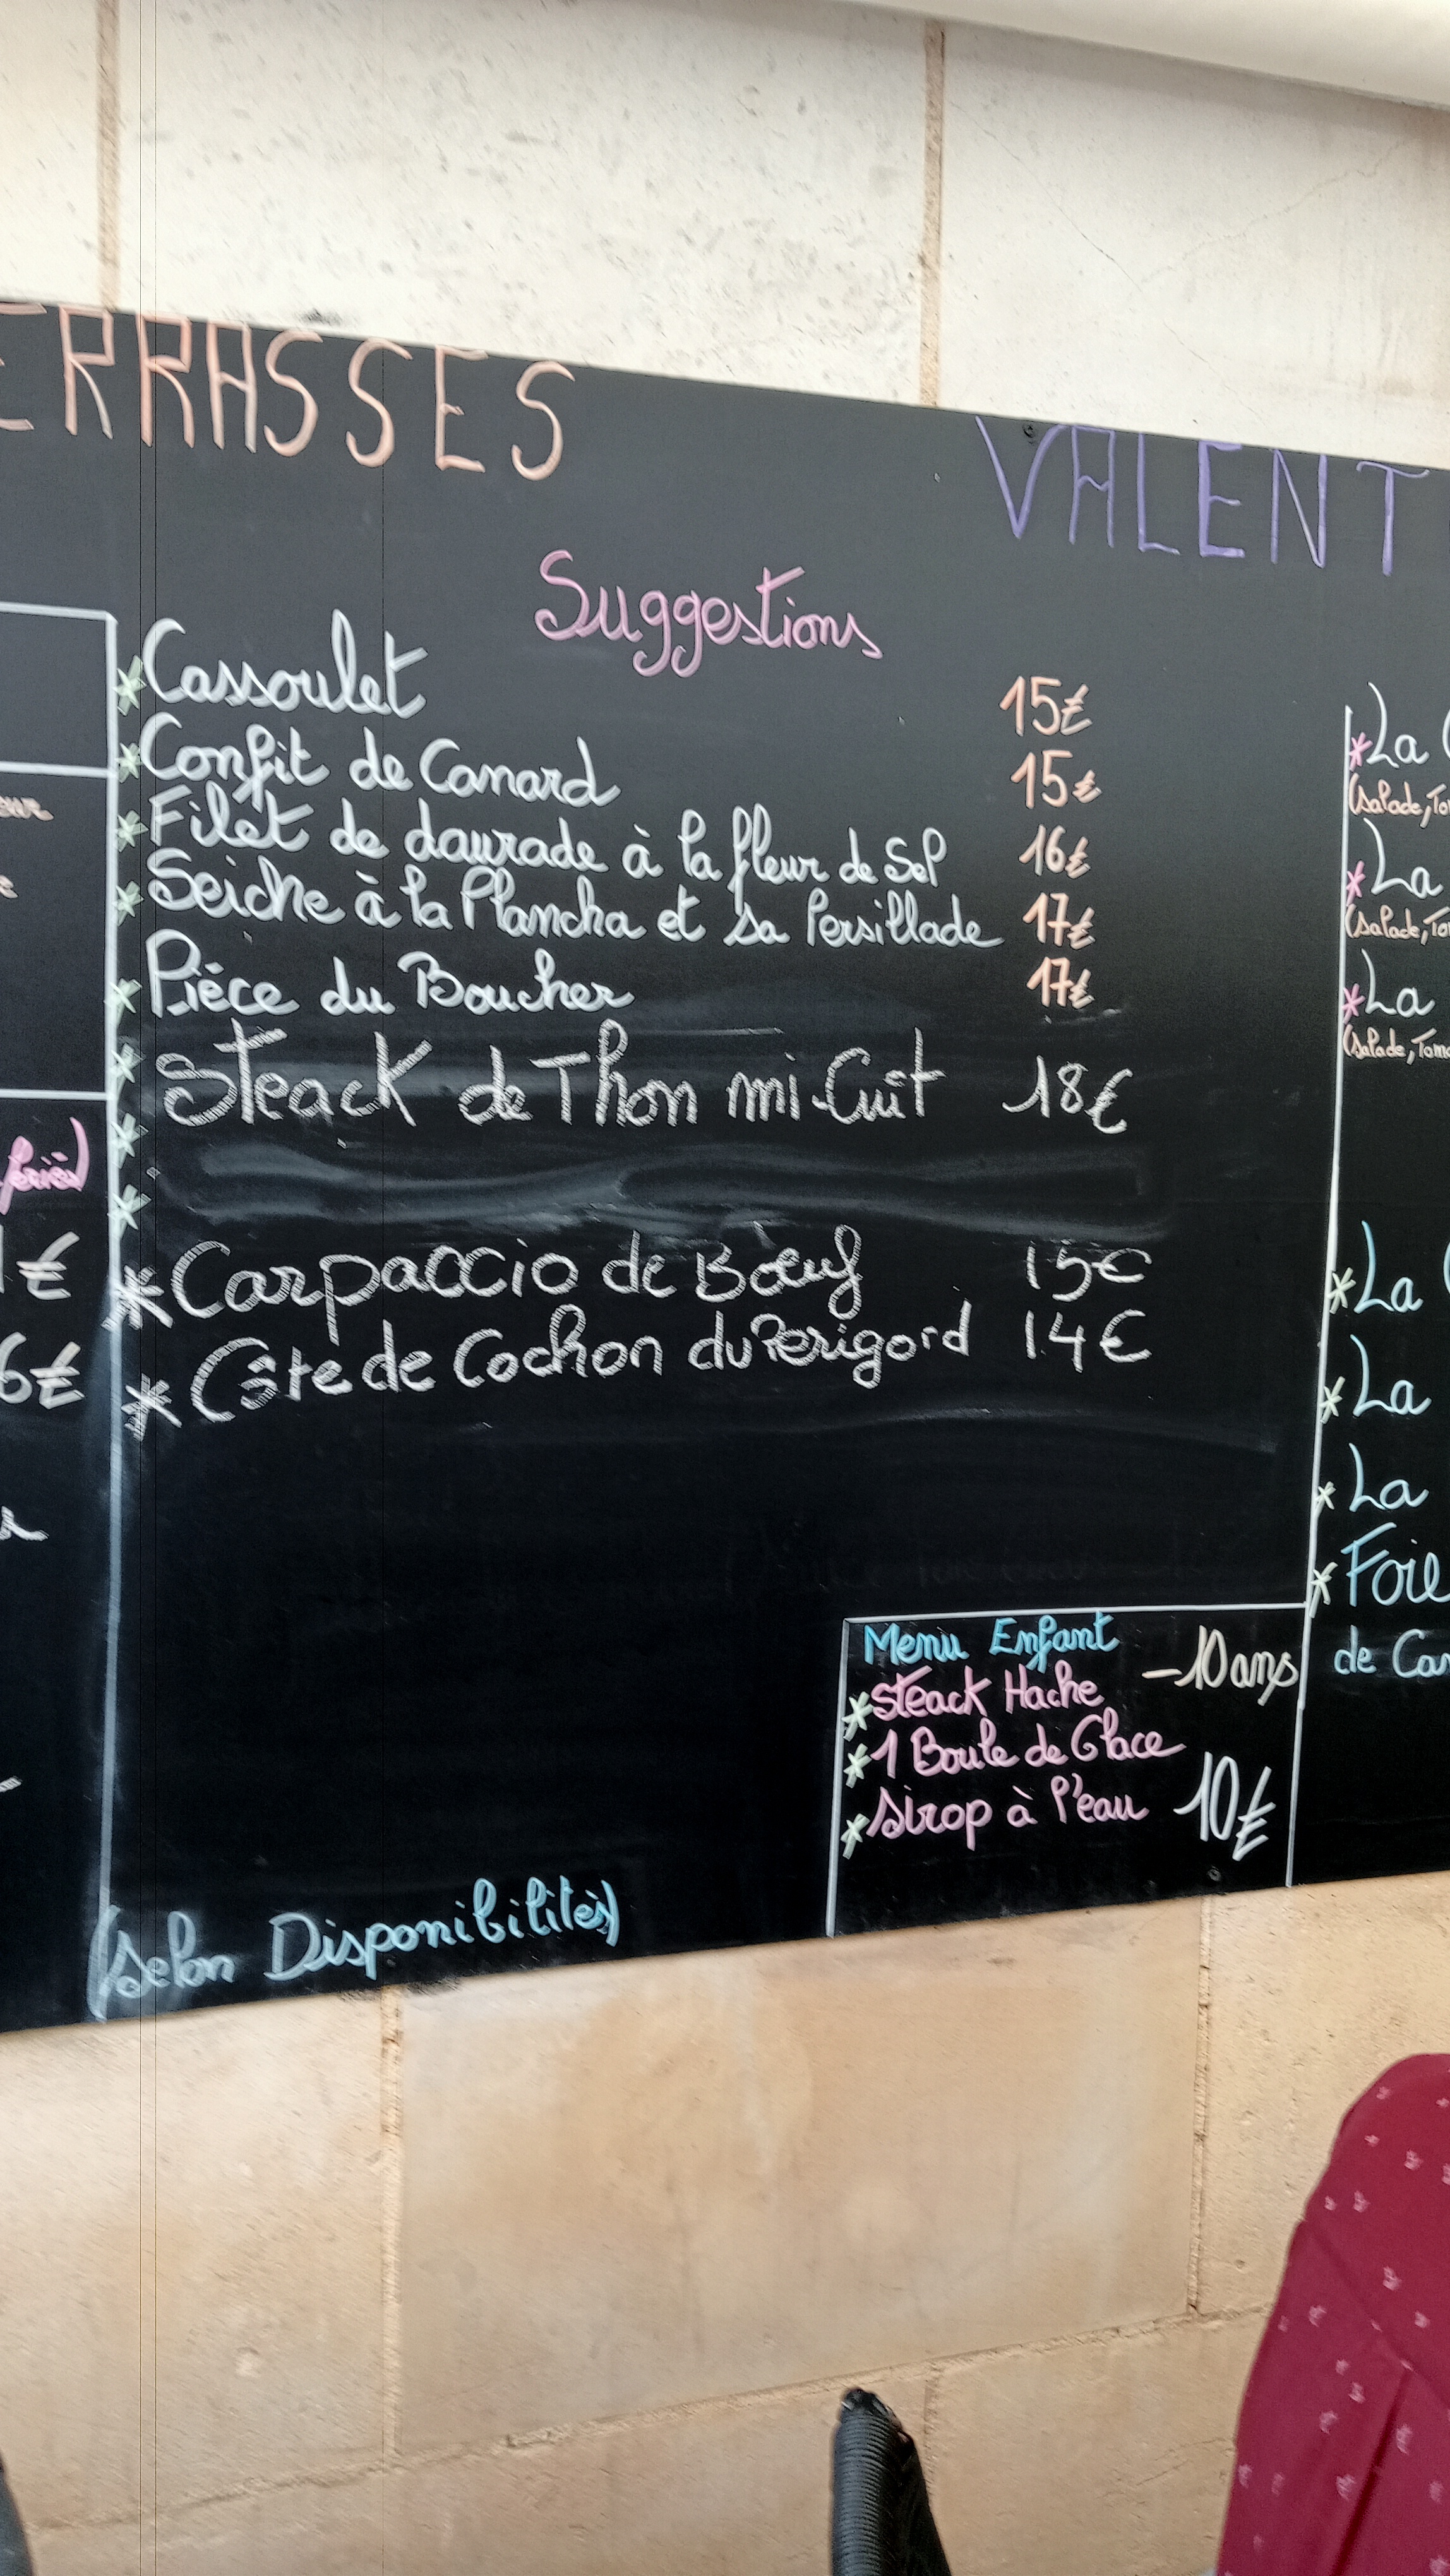 ERRASSES VALENT
Suggestions
*Cassoulet 15€
*Confit de Canard 15€
*Filet de daurade à la fleur de Sel 16€
*Seiche à la Plancha et sa Persillade 17€
*Pièce du Boucher 17€
*Steack de Thon mi-Cuit 18€
*
*
*Carpaccio de Boeuf 15€
*Côte de Cochon du Perigord 14€
(selon Disponibilités)
Menu Enfant -10 ans
*Steack Hache
*1 Boule de Glace
*Sirop à l'eau 10€
fériés)
€
6€
*La
(salade, To
*La
(salade, To
*La
(salade, Tom
*La
*La
*La
*Foie
de Can